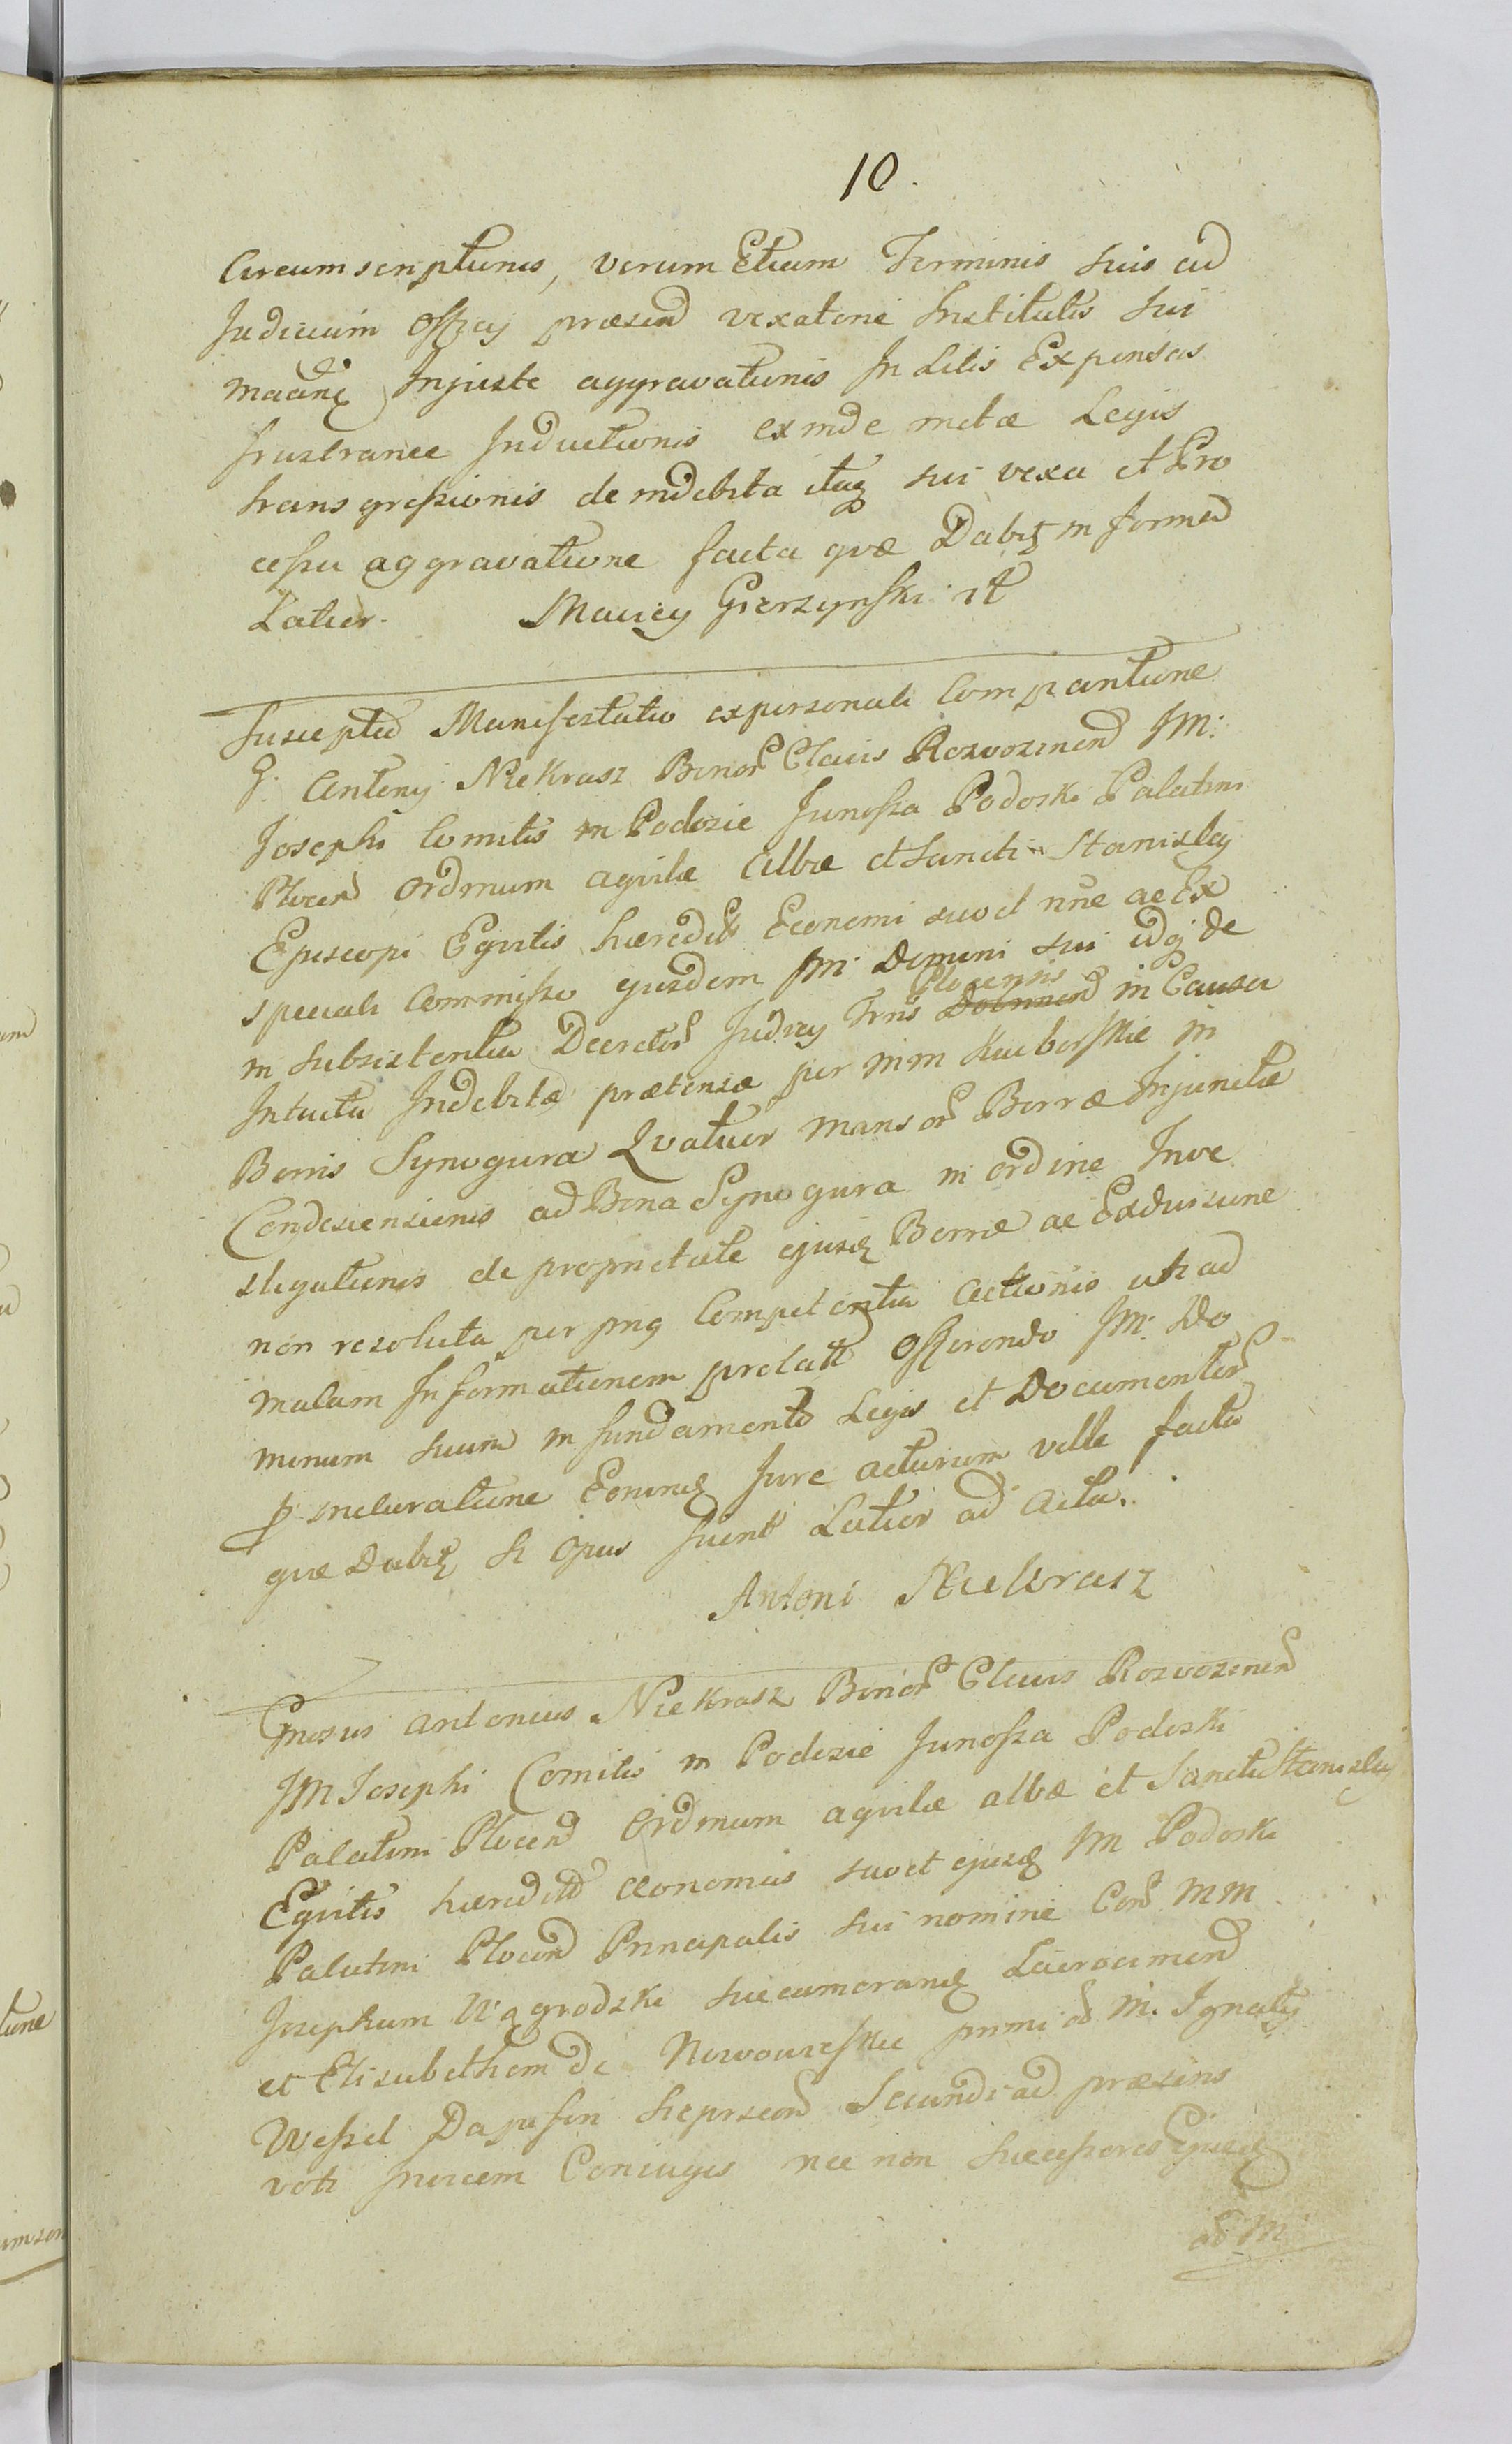 10.
Circumscriptionis, verum Etiam Terminis suis ad
Judicium Officij præsen vexatione Institutis sui
Injuste aggravationis In Litis Expensas
frustranee Inductionis exinde metæ Legis
transgressionis de indebita itaq sui vexa et Pro
cessu aggravatione facta quæ Dabit in forma
Latior. Maciey Gierzynski
Suscepta Manifestatio ex personali Comparitione
G. Antonij Niekrasz Bonor Clavis Rozwozinen JM:
Josephi Comitis in Podosie Junosza Podoski Palatini
Plocen Ordinum aquilæ Albæ et Sancti Stanislaj
Episcopi Equitis hæredit Economi suo et nne ac Ex
speciali Commisso ejusdem JM: Domini sui idq de
in subsistentia Decretor Judicij Trnis Plocensis in Causa
Intuitu Indebitæ prætensæ per MM Kuborskie in
Bonis Synogura Quatuor Mansor Borræ Injunctæ
Condescensionis ad Bona Synogura in ordine Inve
stigationis de proprietate ejusq Borræ ac Exdivisione
non resoluta per png Competentia Actionis uti ad
malam Informationem prolat Offerendo JM: Do
minum suum in fundamento Legis et Documentor
p incluratione Eorunq Jure acturum velle facta
quæ Dabit si Opus fuerit Latior ad Acta.
Antoni Niekrasz
Gnosus Antonius Niekrasz Bonor Clavis Rozwozinen
JM Josephi Comitis in Podosie Junosza Podoski
Palatini Plocen Ordinum aquilæ albæ et Sancti Stanislaj
Equitis hæredit Œconomus suo et ejusq JM Podoski
Palatini Plocen Principalis sui nomine Con MM
Josephum Wągrodzki Succamerarium
et Elisabetham de Nowowieskie primi od M. Ignatij
Wessel Secundi ad præsens
voti Invicem Coniuges nec non Successores Ejusq
od M